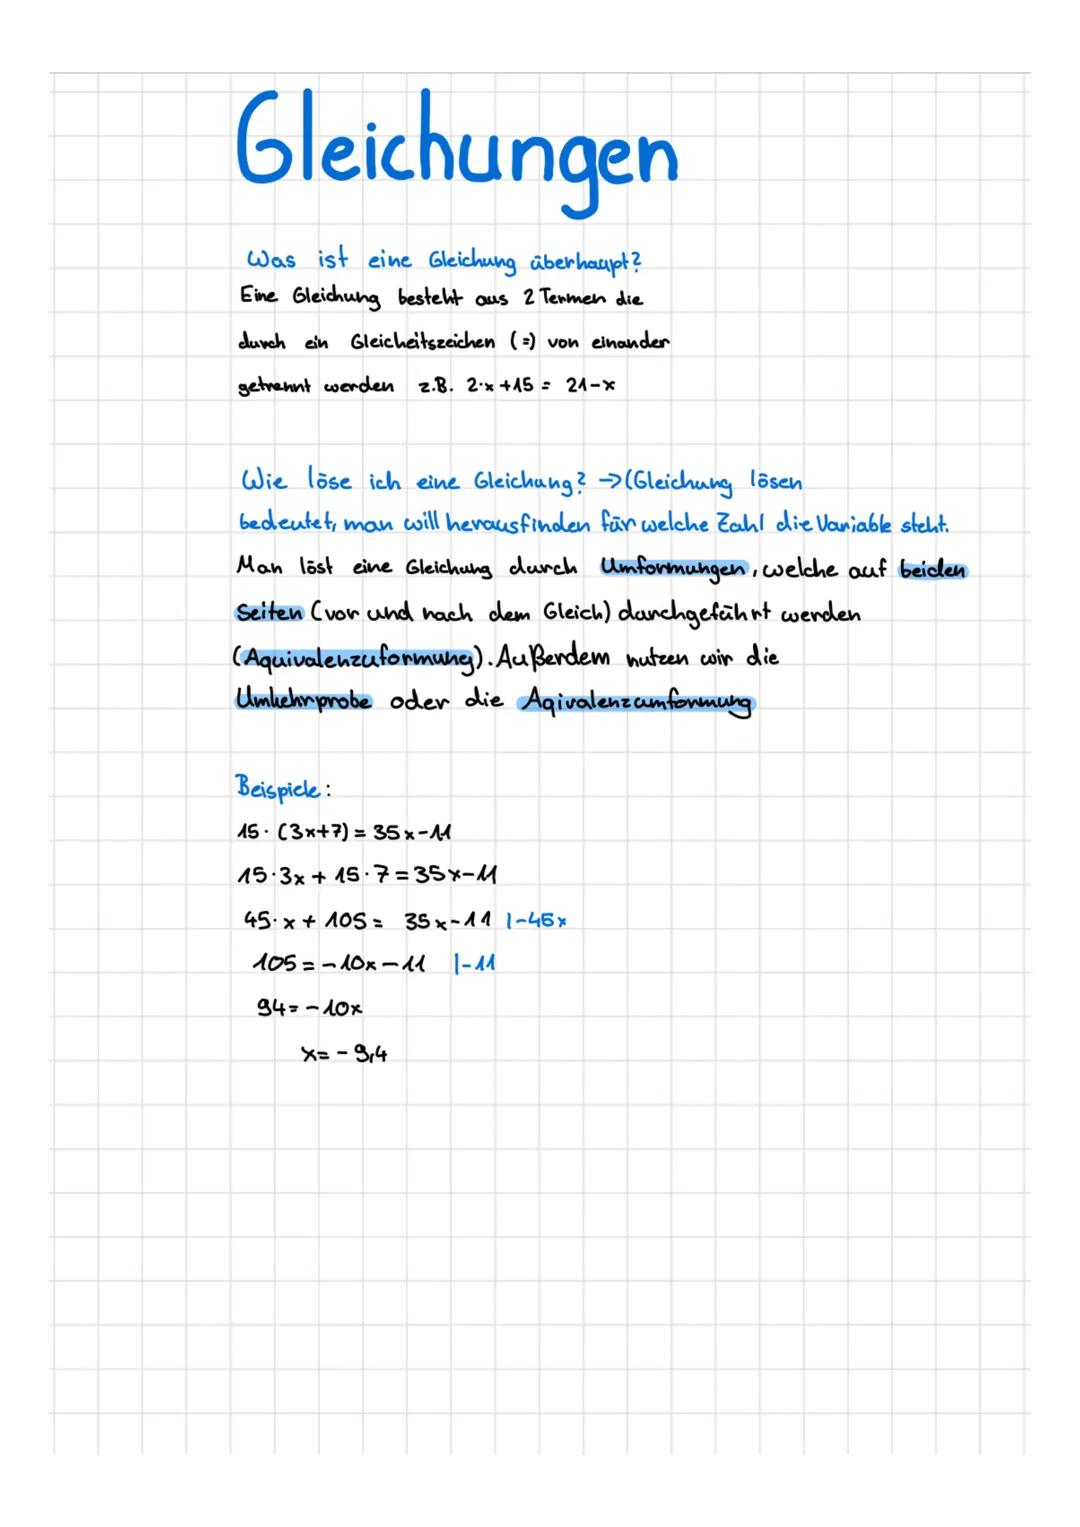 Gleichungen
Was ist eine Gleichung überhaupt?
Eine Gleichung besteht aus 2 Termen die
durch ein Gleicheitszeichen (=) von einander
getrennt werden z.B. 2·x+15 = 21-x
Wie löse ich eine Gleichung? →(Gleichung lösen
bedeutet, man will herausfinden für welche Zahl die Variable steht.
Man löst eine Gleichung durch Umformungen, welche auf beiden
Seiten (vor und nach dem Gleich) durchgeführt werden
(Aquivalenzuformung). Außerdem nutzen wir die
Umkehrprobe oder die Aqivalenzumformung
Beispiele:
15· (3x+7) = 35x-11
15·3x + 15·7 = 35x-11
45·x + 105 = 35x-11 |-45x
105 = -10x-11 |-11
94 = -10x
x = -9,4